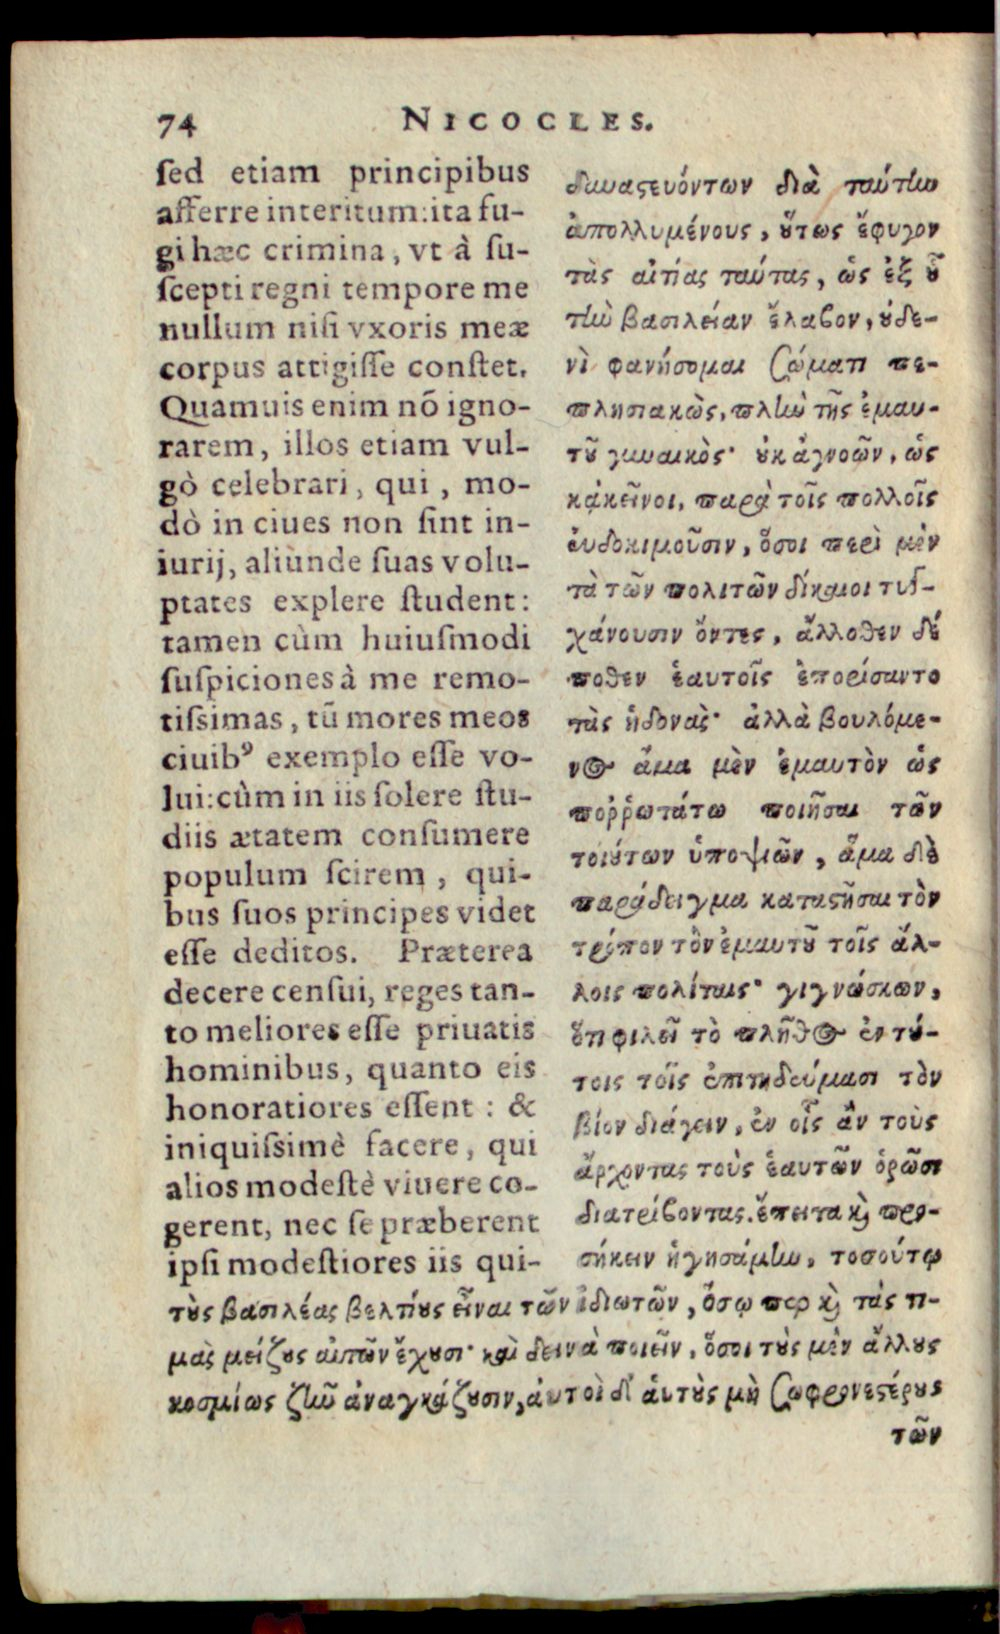 74 NICOCLES.
sed etiam principibus
afferre interitum: ita fu-
gi hæc crimina, vt à su-
scepti regni tempore me
nullum nisi vxoris meæ
corpus attigisse constet.
Quamuis enim nõ igno-
rarem, illos etiam vul-
gò celebrari, qui, mo-
dò in ciues non sint in-
iurij, aliunde suas volu-
ptates explere student:
tamen cùm huiusmodi
suspiciones à me remo-
tissimas, tũ mores meos
ciuibꝰ exemplo esse vo-
lui: cùm in iis solere stu-
diis ætatem consumere
populum scirem, qui-
bus suos principes videt
esse deditos. Præterea
decere censui, reges tan-
to meliores esse priuatis
hominibus, quanto eis
honoratiores essent: &
iniquissimè facere, qui
alios modestè viuere co-
gerent, nec se præberent
ipsi modestiores iis qui-
δυναϛευόντων διὰ ταύτην
ἀπολλυμένους, ὅτως ἔφυγον
τὰς αἰτίας ταύτας, ὡς ἐξ ȣ̃
τὴν βασιλείαν ἔλαβον, ȣ̓δε-
νὶ φανήσομαι σώματι πε-
πλησιακὼς, πλὴν τῆς ἐμαυ-
τȣ̃ γυναικός· ȣ̓κ ἀγνοῶν, ὡς
κἀκεῖνοι, παρὰ τοῖς πολλοῖς
ἐυδοκιμοῦσιν, ὅσοι περὶ μὲν
τὰ τῶν πολιτῶν δίκαιοι τυγ-
χάνουσιν ὄντες, ἄλλοθεν δέ
ποθεν ἑαυτοῖς ἐπορίσαντο
τὰς ἡδονὰς· ἀλλὰ βουλόμε-
νος ἅμα μὲν ἐμαυτὸν ὡς
ποῤῥωτάτω ποιῆσαι τῶν
τοιȣ́των ὑποψιῶν, ἅμα δὲ
παράδειγμα καταϛῆσαι τὸν
τρόπον τὸν ἐμαυτȣ̃ τοῖς ἄλ-
λοις πολίταις· γιγνώσκων,
ὅτι φιλεῖ τὸ πλῆθος ἐν τȣ́-
τοις τοῖς ἐπιτηδεύμασι τὸν
βίον διάγειν, ἐν οἷς ἂν τοὺς
ἄρχοντας τοὺς ἑαυτῶν ὁρῶσι
διατρίβοντας. ἔπειτα ϗ προ-
σήκειν ἡγησάμην, τοσούτῳ
τȣ̀ς βασιλέας βελτίȣς εἶναι τῶν ἰδιωτῶν, ὅσῳ περ ϗ τὰς τι-
μὰς μείζȣς αὐτῶν ἔχȣσι· καὶ δεινὰ ποιεῖν, ὅσοι τȣ̀ς μὲν ἄλλȣς
κοσμίως ζῆν ἀναγκάζȣσιν, ἀυτοὶ δ' ἁυτȣ̀ς μὴ σωφρονεϛέρȣς
τῶν